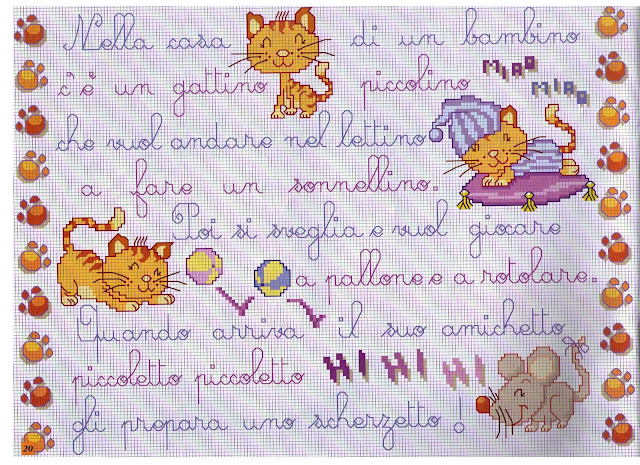 Nella casa di un bambino
c'è un gattino piccolino MIAO
MIAO
che vuol andare nel lettino
a fare un sonnellino.
Poi si sveglia e vuol giocare
a pallone e a rotolare.
Quando arriva il suo amichetto
piccoletto piccoletto HI HI HI
gli prepara uno scherzetto!
20